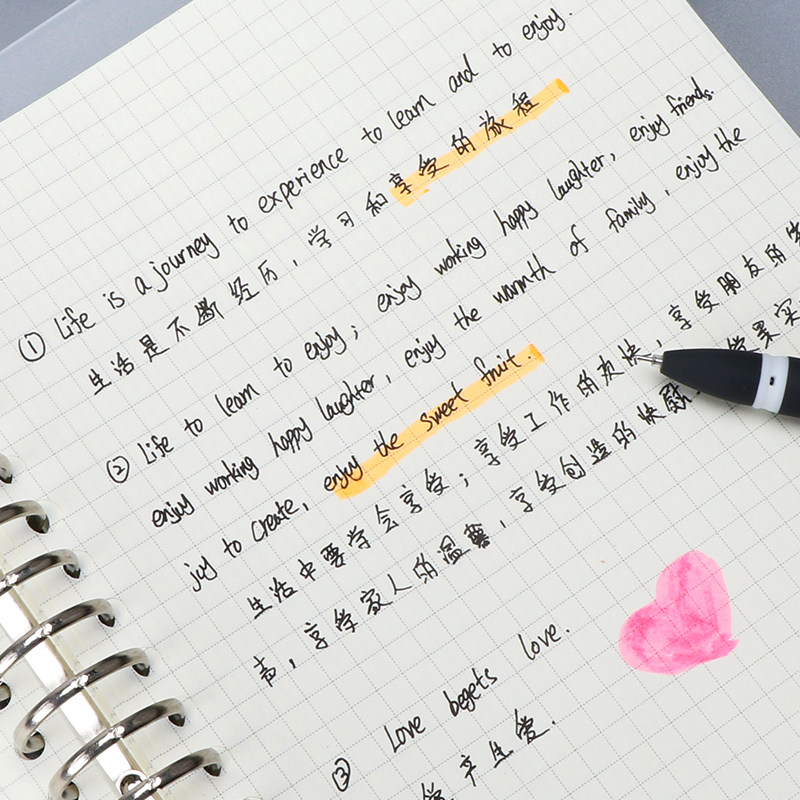 ① Life is a journey to experience to learn and to enjoy.
生活是不断经历，学习和享受的旅程
② Life to learn to enjoy; enjoy working happy laughter, enjoy friends.
enjoy working happy laughter, enjoy the warmth of family, enjoy the
joy to create, enjoy the sweet fruit.
生活中要学会享受；享受工作的欢快，享受朋友的笑
声，享受家人的温馨，享受创造的快慰 果实
③ Love begets love.
爱产生爱.